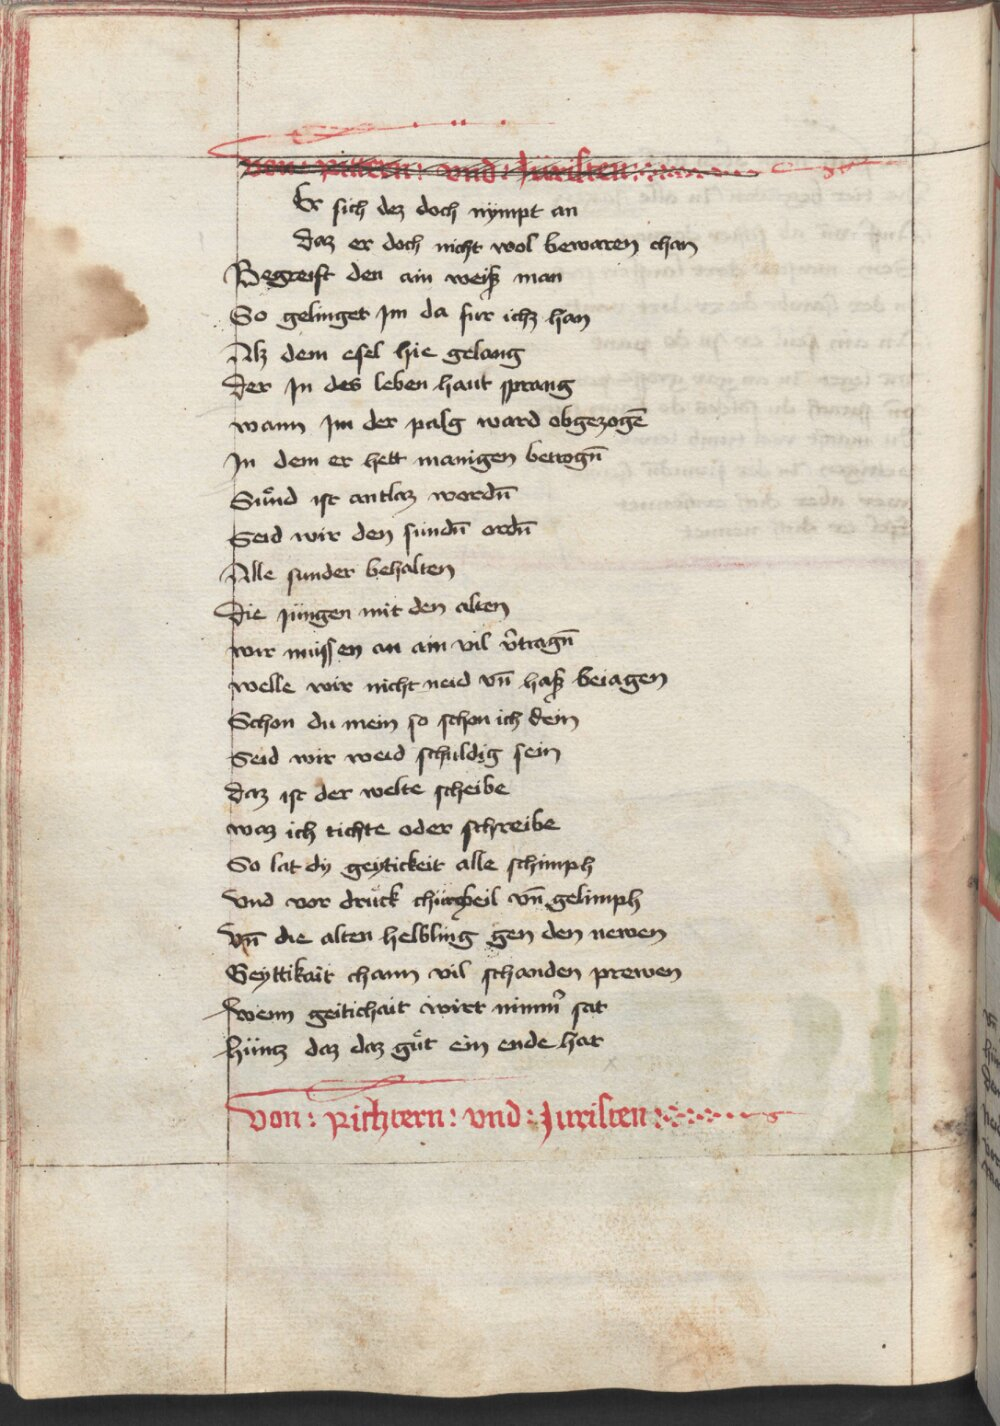 Von : Rittern : vnd : Juristen
Er sich dez doch nympt an
Daz er doch nicht wol bewaren chan
Begreift den ain weiß man
So gelinget Im da fur ichz han
Alz dem esel hie gelang
Der In des leben haut sprang
wann Im der palg ward obgezogē
In dem er hett manigen betrogn̄
Sünd ist antlaz wordn̄
Seid wir den sundn̄ ordn̄
Alle sunder behalten
Die Jüngen mit den alten
wir müssen an ain vil v̄tragn̄
welle wir nicht neid vn̄ haß beiagen
Schon du mein so schon ich dein
Seid wir weid schuldig sein
Daz ist der welte scheibe
waz ich tichte oder schreibe
So lat dy geytickeit alle schimph
Vnd vor druck vn̄ gelimph
Vn̄ die alten helbling gen den newen
Geyttikait chann vil schanden prewen
wenn geitichait wirt nimm̄ sat
Hüntz daz daz gůt ein ende hat
Von : Richtern : vnd : Juristen